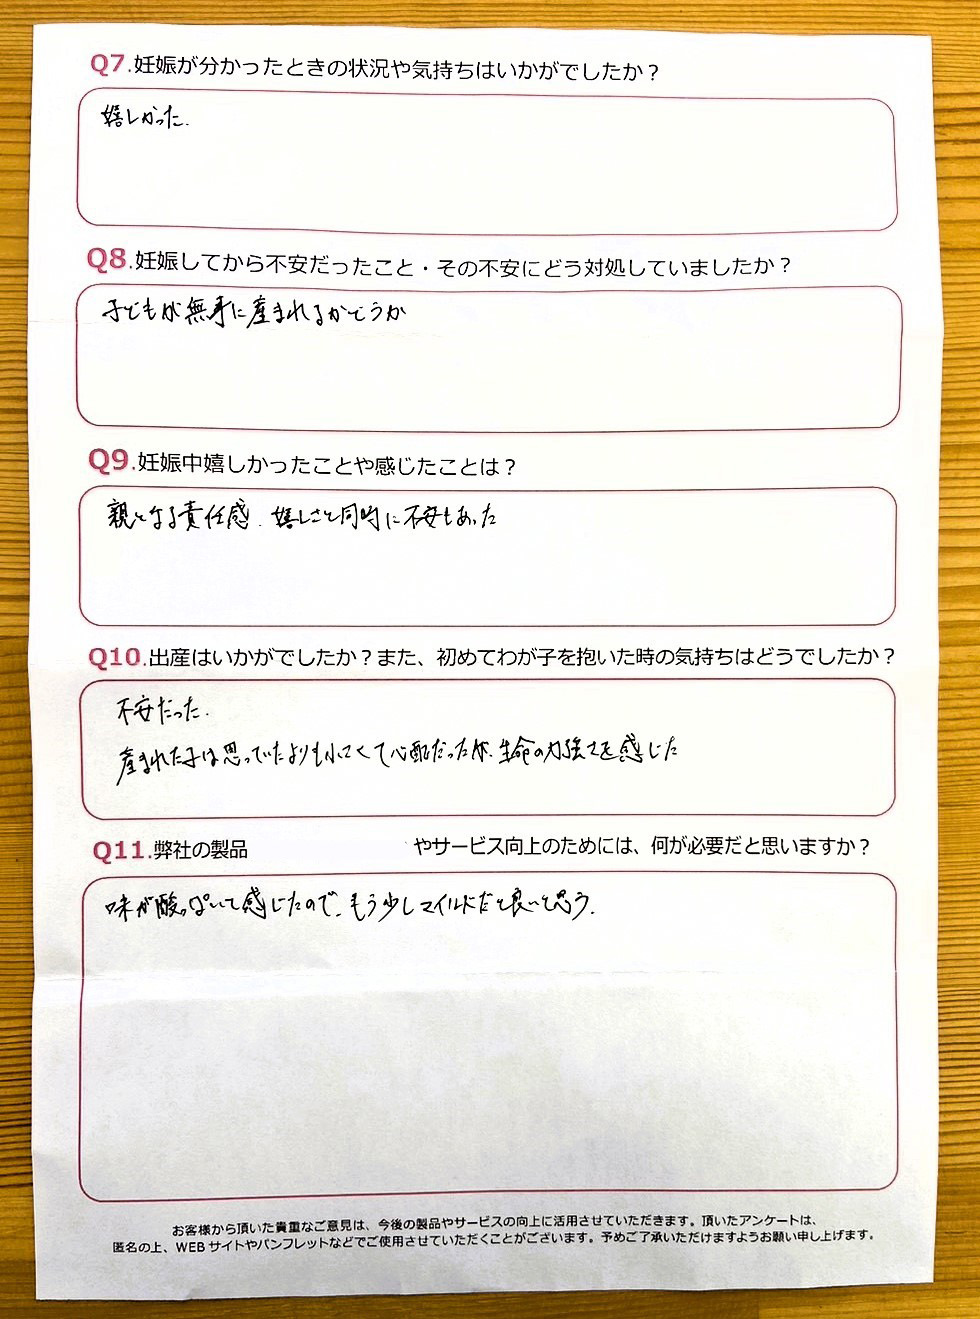 Q7.妊娠が分かったときの状況や気持ちはいかがでしたか？
嬉しかった.
Q8.妊娠してから不安だったこと・その不安にどう対処していましたか？
子どもが無事に産まれるかどうか
Q9.妊娠中嬉しかったことや感じたことは？
親となる責任感. 嬉しさと同時に不安もあった
Q10.出産はいかがでしたか？また、初めてわが子を抱いた時の気持ちはどうでしたか？
不安だった.
産まれた子は思っていたよりも小さくて心配だったが、生命の力強さを感じた
Q11.弊社の製品 やサービス向上のためには、何が必要だと思いますか？
味が酸っぱいと感じたので、もう少しマイルドだと良いと思う.
お客様から頂いた貴重なご意見は、今後の製品やサービスの向上に活用させていただきます。頂いたアンケートは、
匿名の上、WEBサイトやパンフレットなどでご使用させていただくことがございます。予めご了承いただけますようお願い申し上げます。